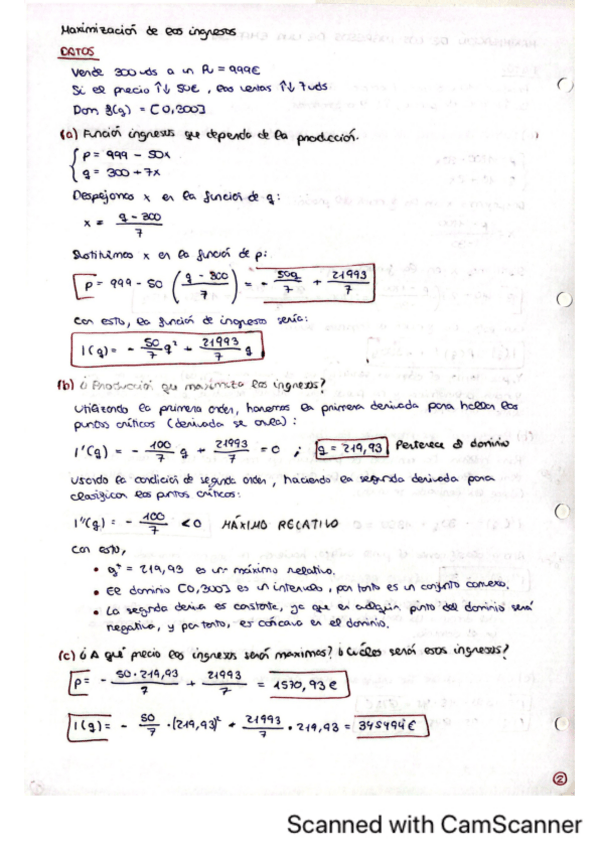 Maximización de los ingresos
DATOS
Vende 300 uds a un Pu = 999€
Si el precio ↑↓ 50€, las ventas ↑↓ 7uds
Dom f(q) = [0,300]
(a) Función ingresos que dependa de la producción.
p = 999 - 50x
q = 300 + 7x
Despejamos x en la función de q:
x = (q - 300)/7
Sustituimos x en la función de p:
p = 999 - 50 ((q - 300)/7) = - 50q/7 + 21993/7
Con esto, la función de ingreso sería:
I(q) = - 50/7 q² + 21993/7 q
(b) ¿Producción que maximiza los ingresos?
Utilizando la primera orden, hacemos la primera derivada para hallar los
puntos críticos (derivada se anula):
I'(q) = - 100/7 q + 21993/7 = 0 ; q = 219,93 Pertenece al dominio
Usando la condición de segundo orden, haciendo la segunda derivada para
clasificar los puntos críticos:
I''(q) = - 100/7 < 0 MÁXIMO RELATIVO
Con esto,
• q* = 219,93 es un máximo relativo.
• El dominio [0,300] es un intervalo, por tanto es un conjunto convexo.
• La segunda deriva es constante, ya que en cualquier punto del dominio será
negativa, y por tanto, es cóncava en el dominio.
(c) ¿A qué precio los ingresos serán máximos? ¿Cuáles serán esos ingresos?
p = - 50·219,93/7 + 21993/7 = 1570,93€
I(q) = - 50/7 · (219,93)² + 21993/7 · 219,93 = 345494€
2
Scanned with CamScanner